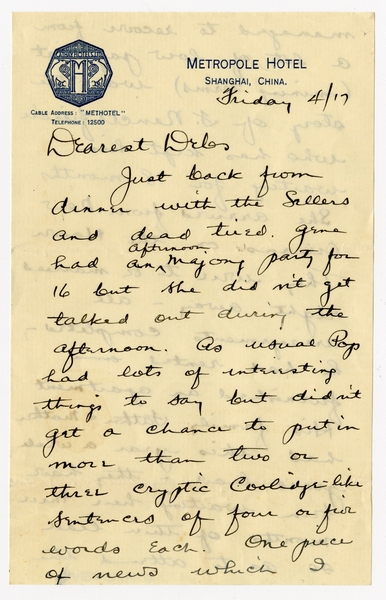 METROPOLE HOTEL
SHANGHAI, CHINA.
CABLE ADDRESS: "METHOTEL"
TELEPHONE: 12500
Friday 4/17
Dearest Debs
Just back from
dinner with the Sellers
and dead tired. Gene
had an afternoon Majong party for
16 but she did n't get
talked out during the
afternoon. As usual Pop
had lots of interesting
things to say but didn't
get a chance to put in
more than two or
three cryptic Coolidge-like
sentences of four or five
words each. One piece
of news which I